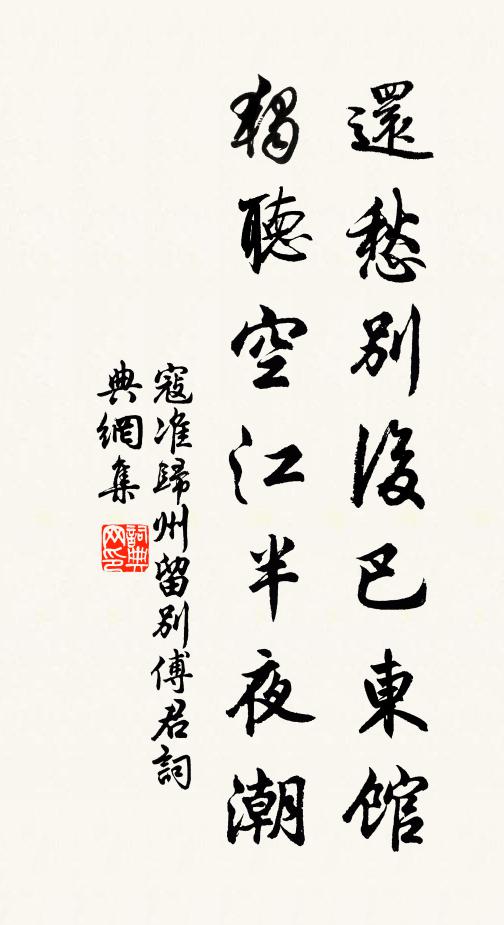 還愁別後巴東館
獨聽空江半夜潮
寇准歸州留別傅君詞
典網集
詞典
网印